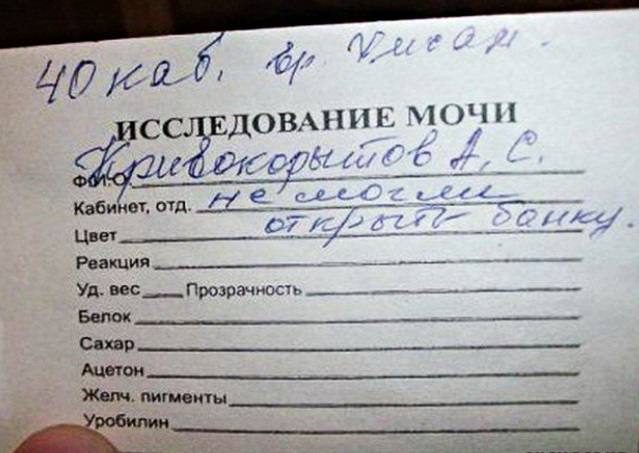 40 каб. вр. Дисан.
ИССЛЕДОВАНИЕ МОЧИ
Ф.И.О. Кривокорытов А. С.
Кабинет, отд. не могли
Цвет открыть банку.
Реакция
Уд. вес Прозрачность
Белок
Сахар
Ацетон
Желч. пигменты
Уробилин